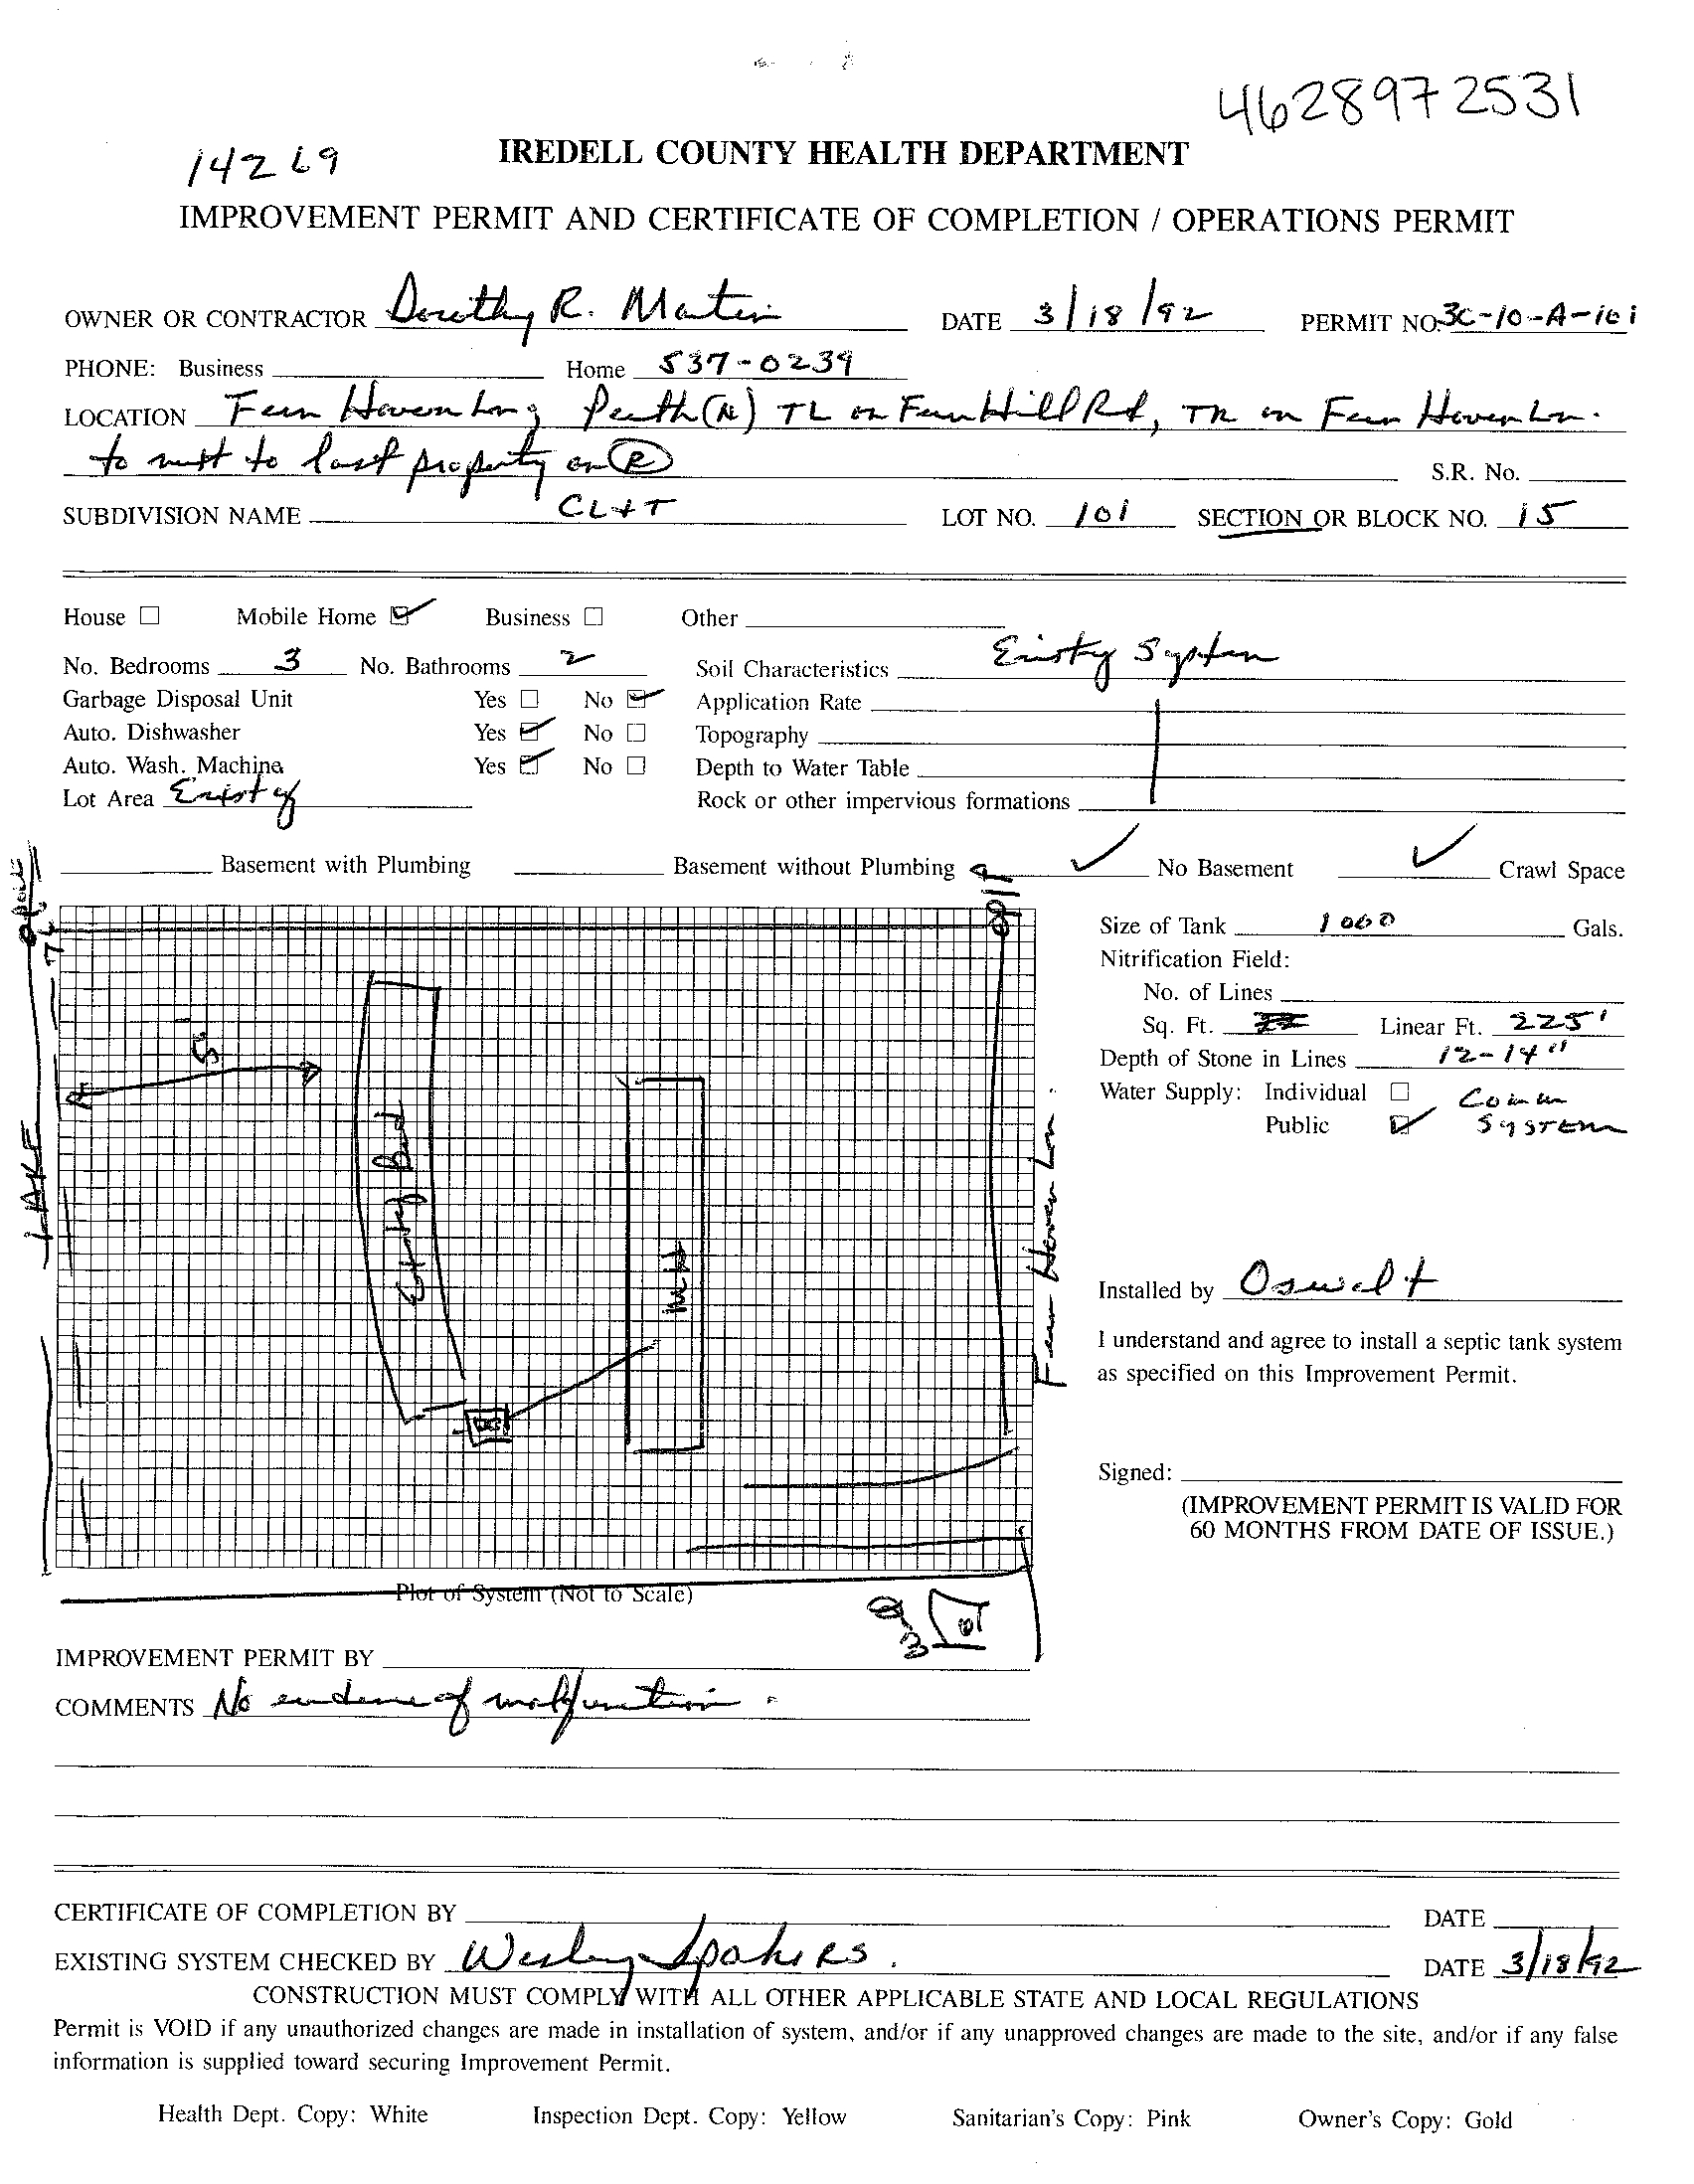 4628972531
14269
IREDELL COUNTY HEALTH DEPARTMENT
IMPROVEMENT PERMIT AND CERTIFICATE OF COMPLETION / OPERATIONS PERMIT
OWNER OR CONTRACTOR Dorothy R. Martin DATE 3/18/92 PERMIT NO. 3C-10-A-101
PHONE: Business Home 537-0239
LOCATION Fern Haven Perth (N) TL on Fern Hill Rd, TR on Fern Haven Ln.
to next to last property on R
S.R. No.
SUBDIVISION NAME CL+T LOT NO. 101 SECTION OR BLOCK NO. 15
House Mobile Home Business Other
No. Bedrooms 3 No. Bathrooms 2 Soil Characteristics Existing System
Garbage Disposal Unit Yes No Application Rate
Auto. Dishwasher Yes No Topography
Auto. Wash. Machine Yes No Depth to Water Table
Lot Area Existing Rock or other impervious formations
Basement with Plumbing Basement without Plumbing No Basement Crawl Space
Size of Tank 1000 Gals.
Nitrification Field:
No. of Lines
Sq. Ft. Linear Ft. 225'
Depth of Stone in Lines 12-14"
Water Supply: Individual Comm
Public System
LAKE
Existing Bed
MH
Fern Haven Ln.
Installed by Oswalt
I understand and agree to install a septic tank system
as specified on this Improvement Permit.
Signed:
(IMPROVEMENT PERMIT IS VALID FOR
60 MONTHS FROM DATE OF ISSUE.)
Plot of System (Not to Scale)
IMPROVEMENT PERMIT BY
COMMENTS No evidence of malfunction.
CERTIFICATE OF COMPLETION BY DATE
EXISTING SYSTEM CHECKED BY Wesley Spakes RS. DATE 3/18/92
CONSTRUCTION MUST COMPLY WITH ALL OTHER APPLICABLE STATE AND LOCAL REGULATIONS
Permit is VOID if any unauthorized changes are made in installation of system, and/or if any unapproved changes are made to the site, and/or if any false
information is supplied toward securing Improvement Permit.
Health Dept. Copy: White Inspection Dept. Copy: Yellow Sanitarian's Copy: Pink Owner's Copy: Gold